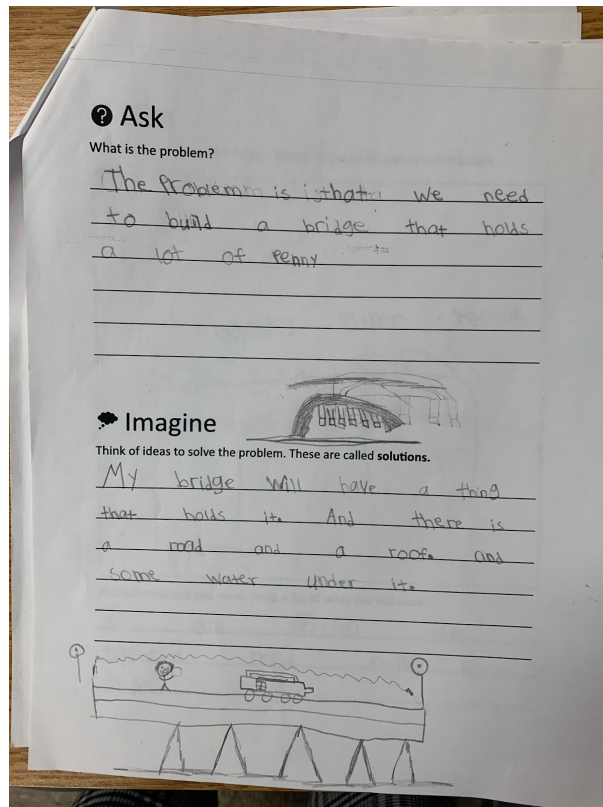 ? Ask
What is the problem?
The Problem is that we need
to build a bridge that holds
a lot of Penny
Imagine
Think of ideas to solve the problem. These are called solutions.
My bridge will have a thing
that holds it. And there is
a road and a roof. and
some water under it.